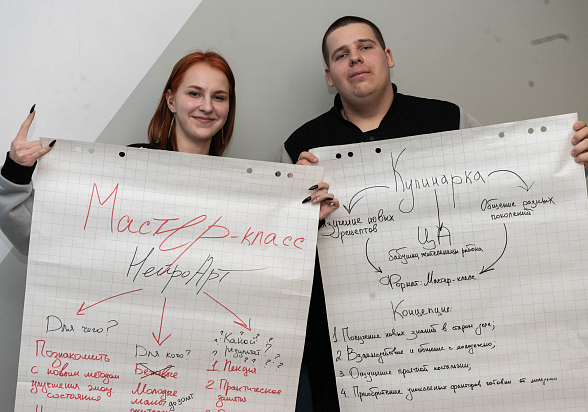 Мастер-класс
НейроАрт
Для чего?
Познакомить
с новым методом
улучшения эмоц
состояния
Для кого?
Молодые
мамы до 30 лет
? Какой ?
? результат ?
1. Лекция
2. Практическое
занятие
3.
Кулинарка
Изучение новых
рецептов
ЦА
бабушки, жительницы района
Общение разных
поколений
Формат: Мастер-класс
Концепция:
1. Получение новых знаний в старом деле;
2. Взаимодействие и общение с молодежью;
3. Ощущение приятной ностальгии;
4. Приобретение уникальных